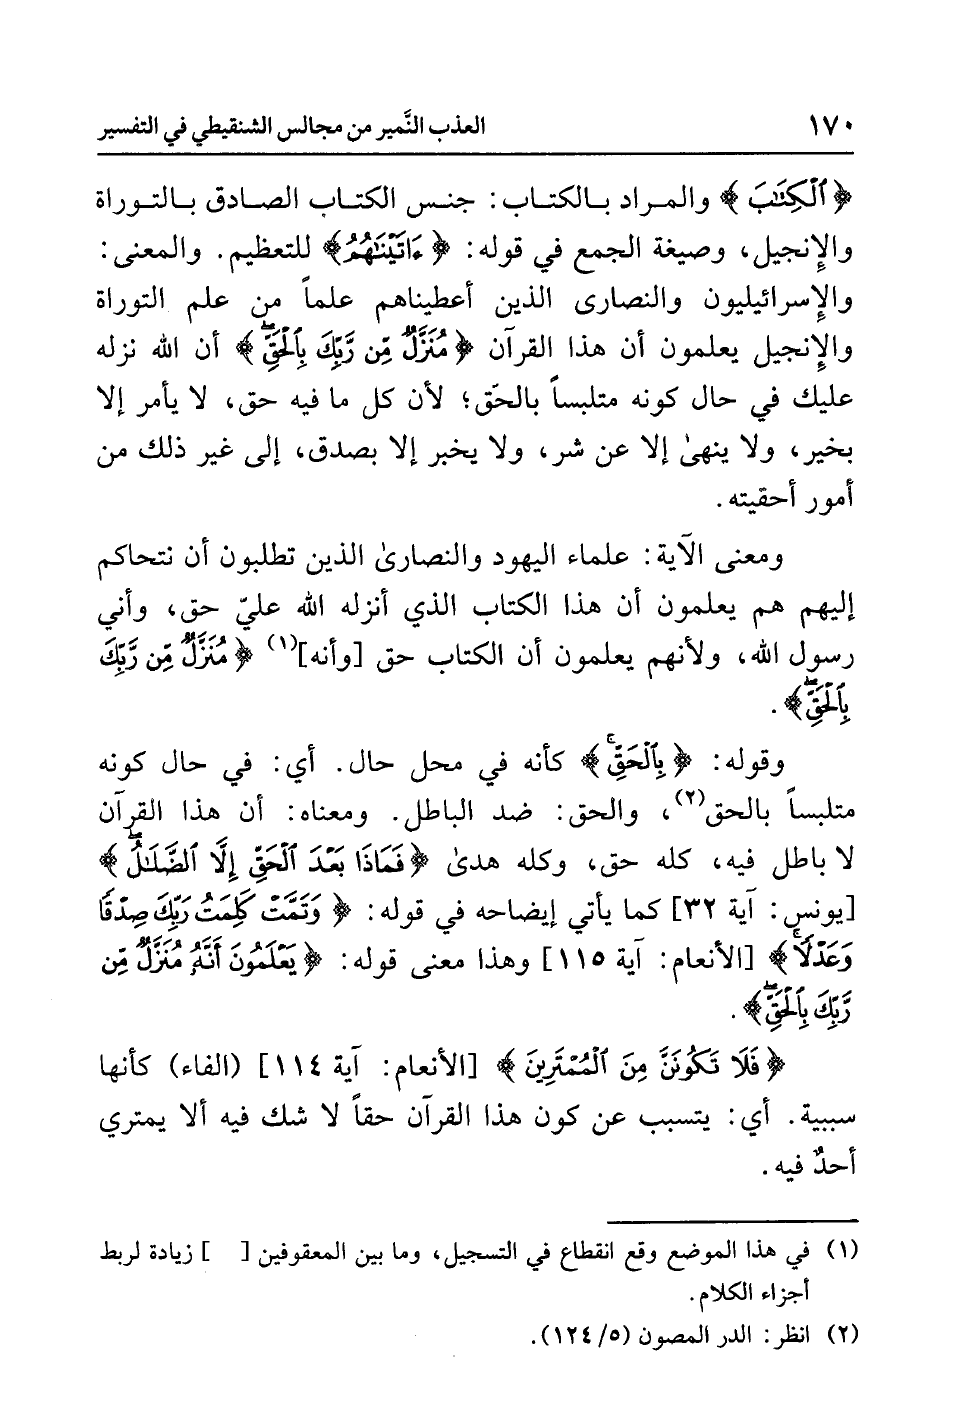 ١٧٠ العذب النَّمير من مجالس الشنقيطي في التفسير
﴿ٱلْكِتَٰبَ﴾ والمراد بالكتاب: جنس الكتاب الصادق بالتوراة
والإنجيل، وصيغة الجمع في قوله: ﴿ءَاتَيْنَٰهُمُ﴾ للتعظيم. والمعنى:
والإسرائيليون والنصارى الذين أعطيناهم علماً من علم التوراة
والإنجيل يعلمون أن هذا القرآن ﴿مُنَزَّلٌ مِّن رَّبِّكَ بِٱلْحَقِّ﴾ أن الله نزله
عليك في حال كونه متلبساً بالحَق؛ لأن كل ما فيه حق، لا يأمر إلا
بخير، ولا ينهىٰ إلا عن شر، ولا يخبر إلا بصدق، إلى غير ذلك من
أمور أحقيته.
ومعنى الآية: علماء اليهود والنصارىٰ الذين تطلبون أن نتحاكم
إليهم هم يعلمون أن هذا الكتاب الذي أنزله الله عليّ حق، وأني
رسول الله، ولأنهم يعلمون أن الكتاب حق [وأنه](١) ﴿مُنَزَّلٌ مِّن رَّبِّكَ
بِٱلْحَقِّ﴾.
وقوله: ﴿بِٱلْحَقِّ﴾ كأنه في محل حال. أي: في حال كونه
متلبساً بالحق(٢)، والحق: ضد الباطل. ومعناه: أن هذا القرآن
لا باطل فيه، كله حق، وكله هدىٰ ﴿فَمَاذَا بَعْدَ ٱلْحَقِّ إِلَّا ٱلضَّلَٰلُ﴾
[يونس: آية ٣٢] كما يأتي إيضاحه في قوله: ﴿وَتَمَّتْ كَلِمَتُ رَبِّكَ صِدْقًا
وَعَدْلًا﴾ [الأنعام: آية ١١٥] وهذا معنى قوله: ﴿يَعْلَمُونَ أَنَّهُۥ مُنَزَّلٌ مِّن
رَّبِّكَ بِٱلْحَقِّ﴾.
﴿فَلَا تَكُونَنَّ مِنَ ٱلْمُمْتَرِينَ﴾ [الأنعام: آية ١١٤] (الفاء) كأنها
سببية. أي: يتسبب عن كون هذا القرآن حقاً لا شك فيه ألا يمتري
أحدٌ فيه.
(١) في هذا الموضع وقع انقطاع في التسجيل، وما بين المعقوفين [ ] زيادة لربط
أجزاء الكلام.
(٢) انظر: الدر المصون (٥/ ١٢٤).